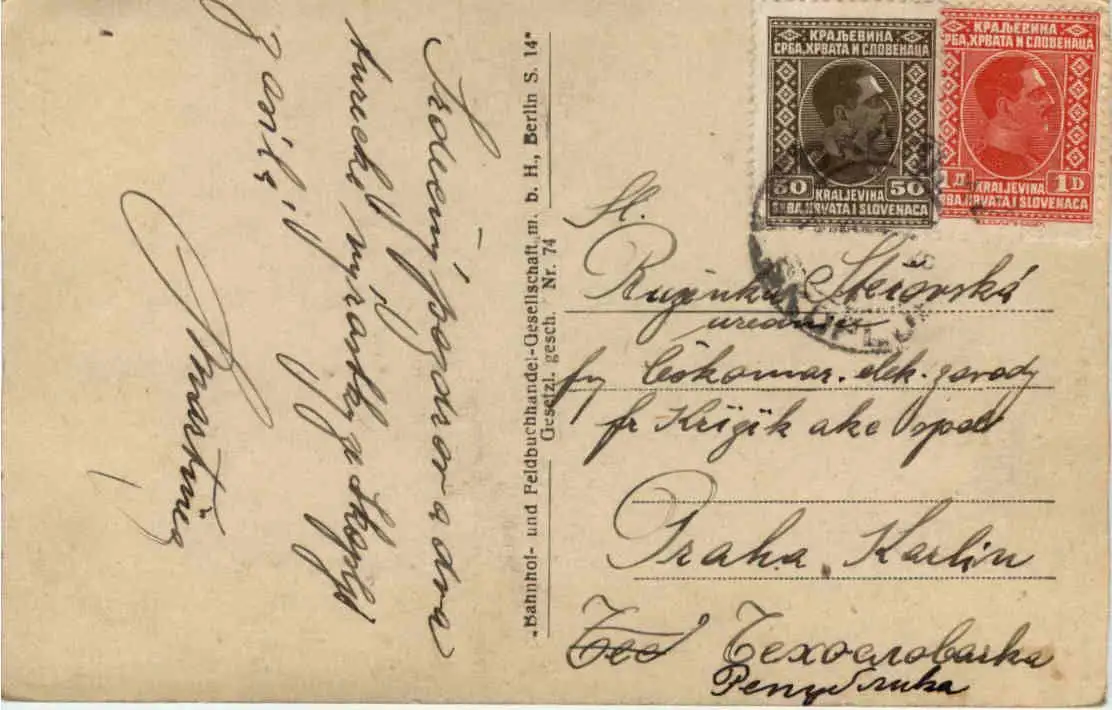 Srdečný pozdrav a dva
turecké výrazky ze Skoplje
zasílá
КРАЉЕВИНА
СРБА, ХРВАТА И СЛОВЕНАЦА
50 50
KRALJEVINA
SRBA, HRVATA I SLOVENACA
КРАЉЕВИНА
СРБА, ХРВАТА И СЛОВЕНАЦА
1Д 1D
KRALJEVINA
SRBA, HRVATA I SLOVENACA
„Bahnhof- und Feldbuchhandel-Gesellschaft, m. b. H., Berlin S. 14"
Gesetzl. gesch. Nr. 74
Sl.
Ruženka
fy Českomor. elek. zavody
fr Križik akc spol
Praha Karlin
Чехословачка
Република